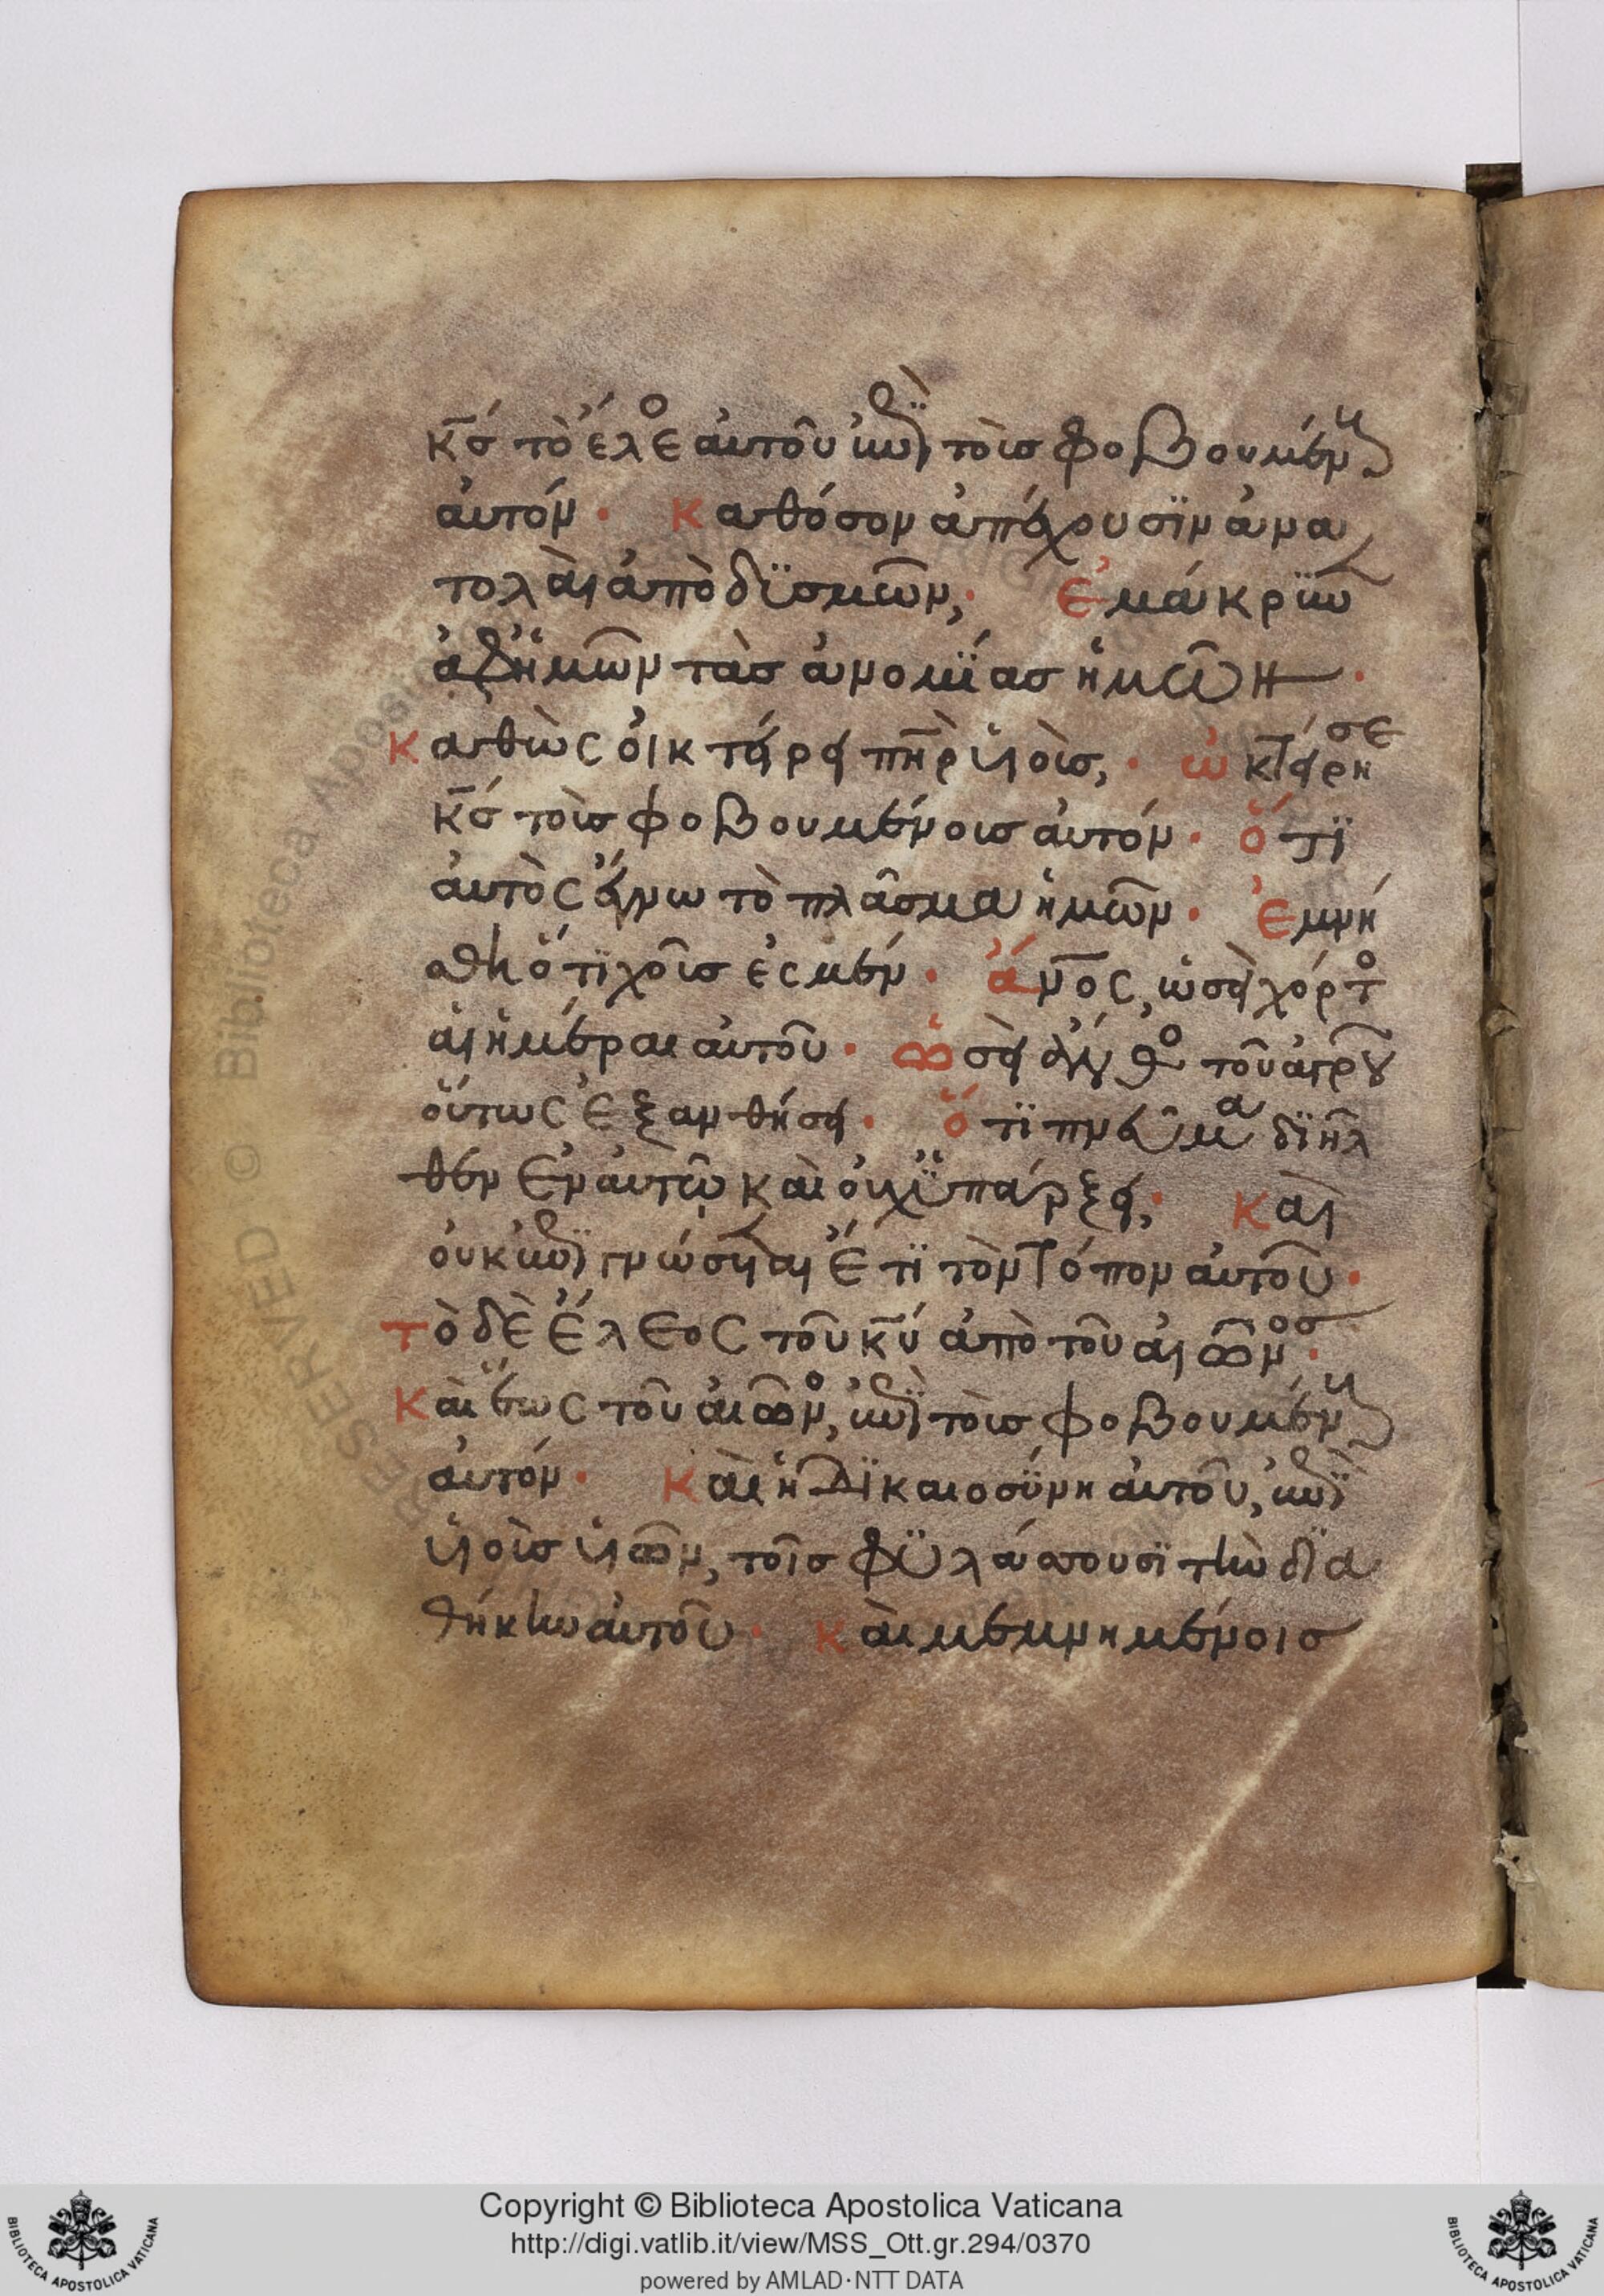 κ̅ς̅ τὸ ἔλεο αὐτοῦ ἐπὶ τοὺς φοβουμέν
αὐτόν · Καθόσον ἀπέχουσϊν ἀνα
τολαὶ ἀπὸ δϊσμῶν, · Ἐμάκρϋν
ἀφ ἡμῶν τὰς ἀνομΐας ἡμῶν ·
Καθὼς οἰκτείρει π̅η̅ρ̅ ὑιοὺς, · ὠκτείρησε
κ̅ς̅ τοὺς φοβουμένους αὐτόν · ὅτϊ
αὐτὸς ἔγνω τὸ πλάσμα ἡμῶν · Ἐμνή
σθη ὅτϊ χοῦς ἐσμέν · ἄν̅ο̅ς, ὡσεὶ χόρτο
αἱ ἡμέραι αὐτοῦ · Ὡσεὶ ἄνθο τοῦ ἀγροῦ
οὕτως ἐξανθήσει · ὅτϊ πνεῦμα δϊῆλ
θεν ἐν αὐτῶ καὶ οὐχ ϋπάρξει, · Καὶ
οὐκ ἐπϊγνώσεται ἔτϊ τὸν τόπον αὐτοῦ ·
Τὸ δὲ ἔλεος τοῦ κ̅υ̅ ἀπὸ τοῦ αἰῶνος ·
Καὶ ἕως τοῦ αἰῶνο, ἐπὶ τοὺς φοβουμέν
αὐτόν · Καὶ ἡ δϊκαιοσΰνη αὐτοῦ, ἐπὶ
ὑιοὺς ὑιῶν, τοῖς φϋλάσσουσϊ τὴν δϊα
θήκην αὐτοῦ · Καὶ μεμνημένοις
Copyright © Biblioteca Apostolica Vaticana
http://digi.vatlib.it/view/MSS_Ott.gr.294/0370
powered by AMLAD·NTT DATA
BIBLIOTECA APOSTOLICA VATICANA
BIBLIOTECA APOSTOLICA VATICANA